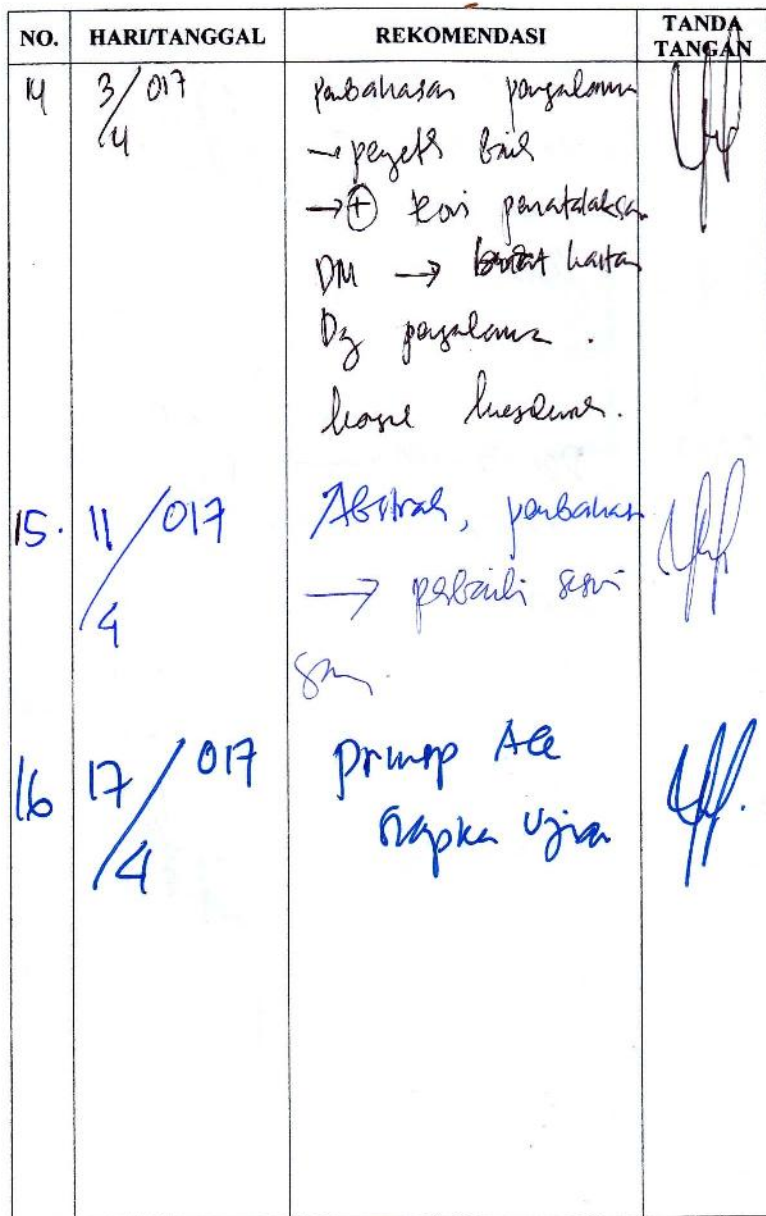 NO. HARI/TANGGAL REKOMENDASI TANDA TANGAN
14 3/4 017 pembahasan pengalaman
→
→ (+) teori penatalaksan
DM → buat kaitan
Dg pengalaman .
15. 11/4 017 Abstrak, pembahasan
→ perbaiki sesuai
16 17/4 017 prinsip Acc
siapkan Ujian